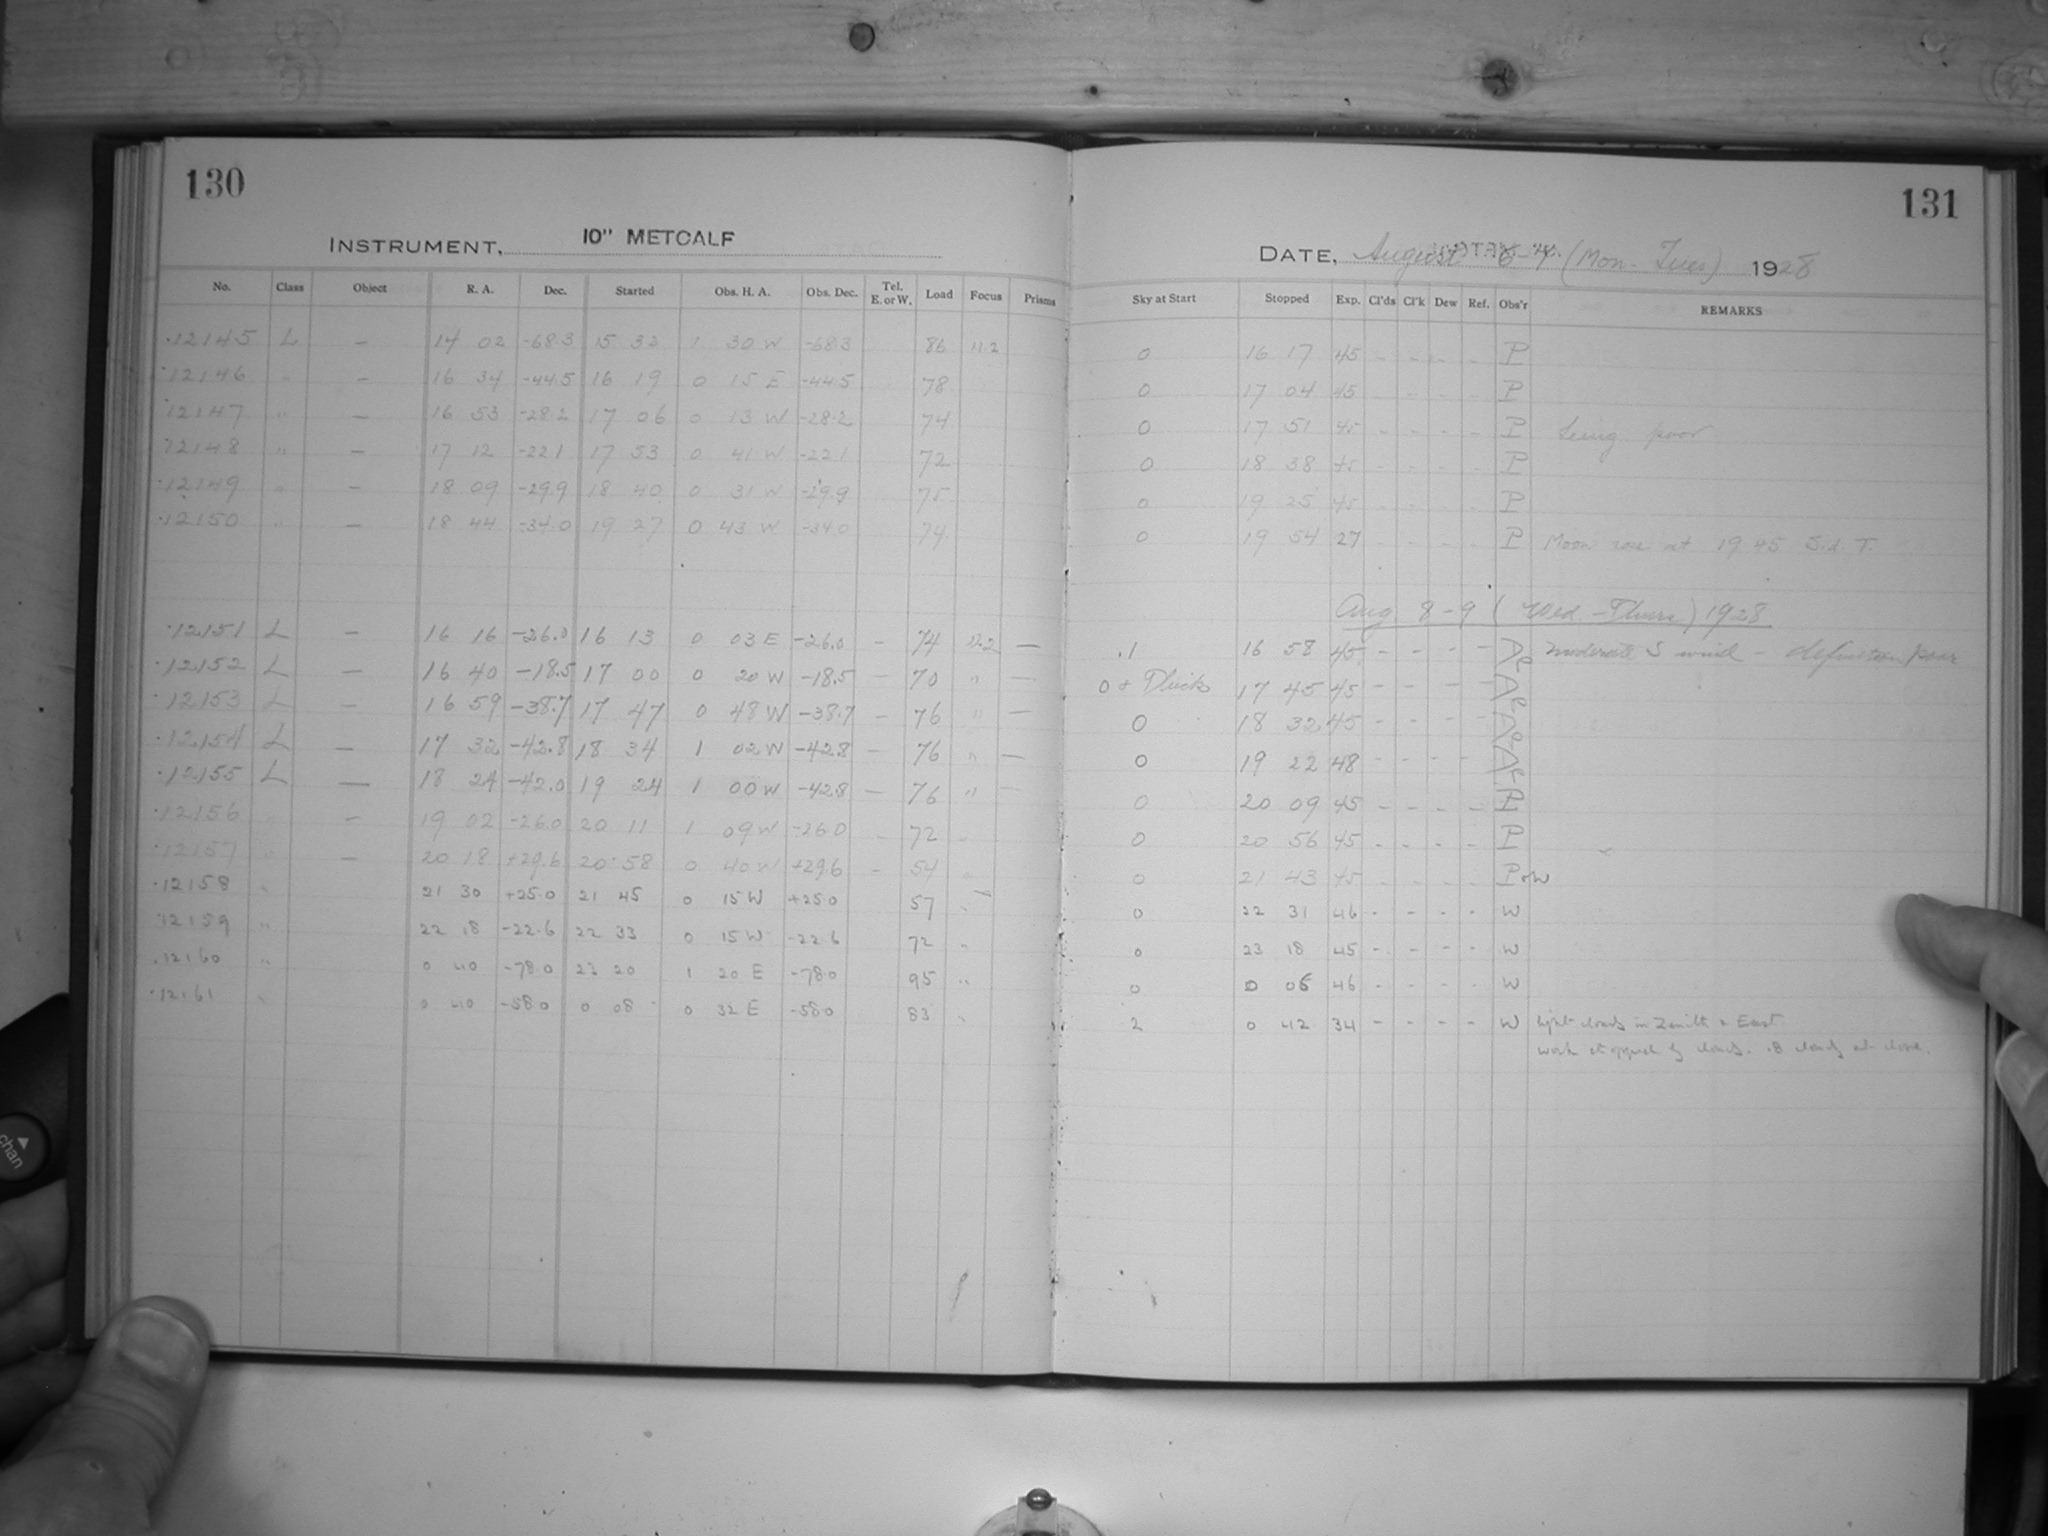 130
INSTRUMENT, 10" METCALF
No. Class Object R. A. Dec. Started Obs. H. A. Obs. Dec. Tel. E. or W. Load Focus Prisms
12145 L — 14 02 -68.3 15 32 1 30 W -68.3 86 11.2
12146 " — 16 34 -44.5 16 19 0 15 E -44.5 78
12147 " — 16 53 -28.2 17 06 0 13 W -28.2 74
12148 " — 17 12 -22.1 17 53 0 41 W -22.1 72
12149 " — 18 09 -29.9 18 40 0 31 W -29.9 75
12150 " — 18 44 -34.0 19 27 0 43 W -34.0 74
12151 L — 16 16 -26.0 16 13 0 03 E -26.0 - 74 11.2 —
12152 L — 16 40 -18.5 17 00 0 20 W -18.5 — 70 " —
12153 L — 16 59 -38.7 17 47 0 48 W -38.7 - 76 " —
12154 L — 17 32 -42.8 18 34 1 02 W -42.8 — 76 " —
12155 L — 18 24 -42.0 19 24 1 00 W -42.8 — 76 " —
12156 " — 19 02 -26.0 20 11 1 09 W -26.0 - 72 "
12157 " — 20 18 +29.6 20 58 0 40 W +29.6 - 54 "
12158 " 21 30 +25.0 21 45 0 15 W +25.0 57 "
12159 " 22 18 -22.6 22 33 0 15 W -22.6 72 "
12160 " 0 40 -78.0 23 20 1 20 E -78.0 95 "
12161 " 0 40 -58.0 0 08 0 32 E -58.0 83 "
131
DATE, August 6-7 (Mon-Tues) 1928
Sky at Start Stopped Exp. Cl'ds Cl'k Dew Ref. Obs'r REMARKS
0 16 17 45 - - - - P
0 17 04 45 - - - - P
0 17 51 45 - - - - P Seeing poor
0 18 38 45 - - - - P
0 19 25 45 - - - - P
0 19 54 27 - - - - P Moon rose at 19 45 Sid. T.
Aug 8-9 (Wed-Thurs) 1928
.1 16 58 45 - - - - Moderate S wind - definition poor
0 + Thick 17 45 45 - - - -
0 18 32 45 - - - -
0 19 22 48 - - - -
0 20 09 45 - - - - P
0 20 56 45 - - - - P
0 21 43 45 - - - - P+W
0 22 31 46 - - - - W
0 23 18 45 - - - - W
0 0 06 46 - - - - W
2 0 42 34 - - - - W Light clouds in Zenith & East.
work stopped by clouds. .8 cloudy at close.
chan